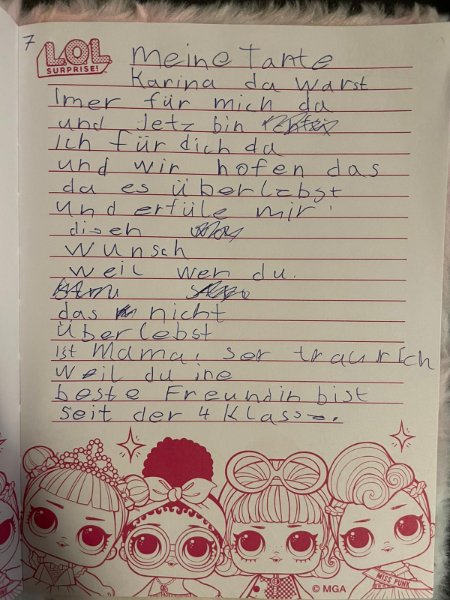 7
LOL
SURPRISE!
meine Tante
Karina da warst
Imer für mich da
und Jetz bin
Ich für dich da
und wir hofen das
da es überlebst
und erfüle mir
disen
wunsch
weil wen du
das nicht
überlebst
ist Mama ser traurich
weil du ire
beste Freundin bist
seit der 4 Klasse.
MISS PUNK
© MGA